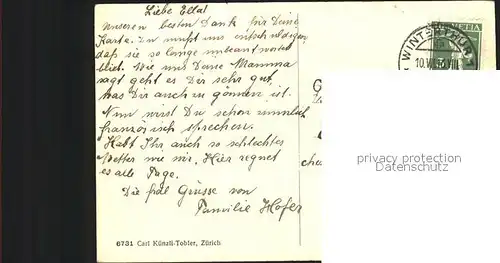 Liebe Ella!
Unseren besten Dank für Deine
Karte. Du musst uns entschuldigen,
daß sie so lange unbeantwortet
blieb. Wie uns Deine Mamma
sagt geht es Dir sehr gut,
was Dir auch zu gönnen ist.
Nun wirst Du schon ziemlich
französisch sprechen.
Habt Ihr auch so schlechtes
Wetter wie wir. Hier regnet
es alle Tage.
Grüsse von
Familie Hofer
6731 Carl Künzli-Tobler, Zürich
WINTERTHUR
HELVETIA
privacy protection
Datenschutz